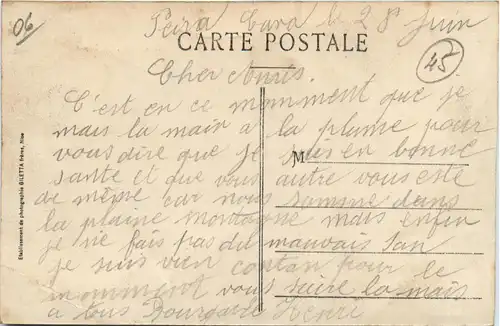 06
Peira Cava le 28 Juin
CARTE POSTALE
45
Cher Amis.
C'est en ce momment que je
mais la main a la plume pour
vous dire que je suis en bonne
M
santé et que vous autre vous este
de même car nous somme dans
la plaine montagne mais enfin
je ne fais pas du mauvais san
je suis vien contan pour le
momment vous saire la main
a tous Henri
Etablissement de photographie GILETTA frères, Nice